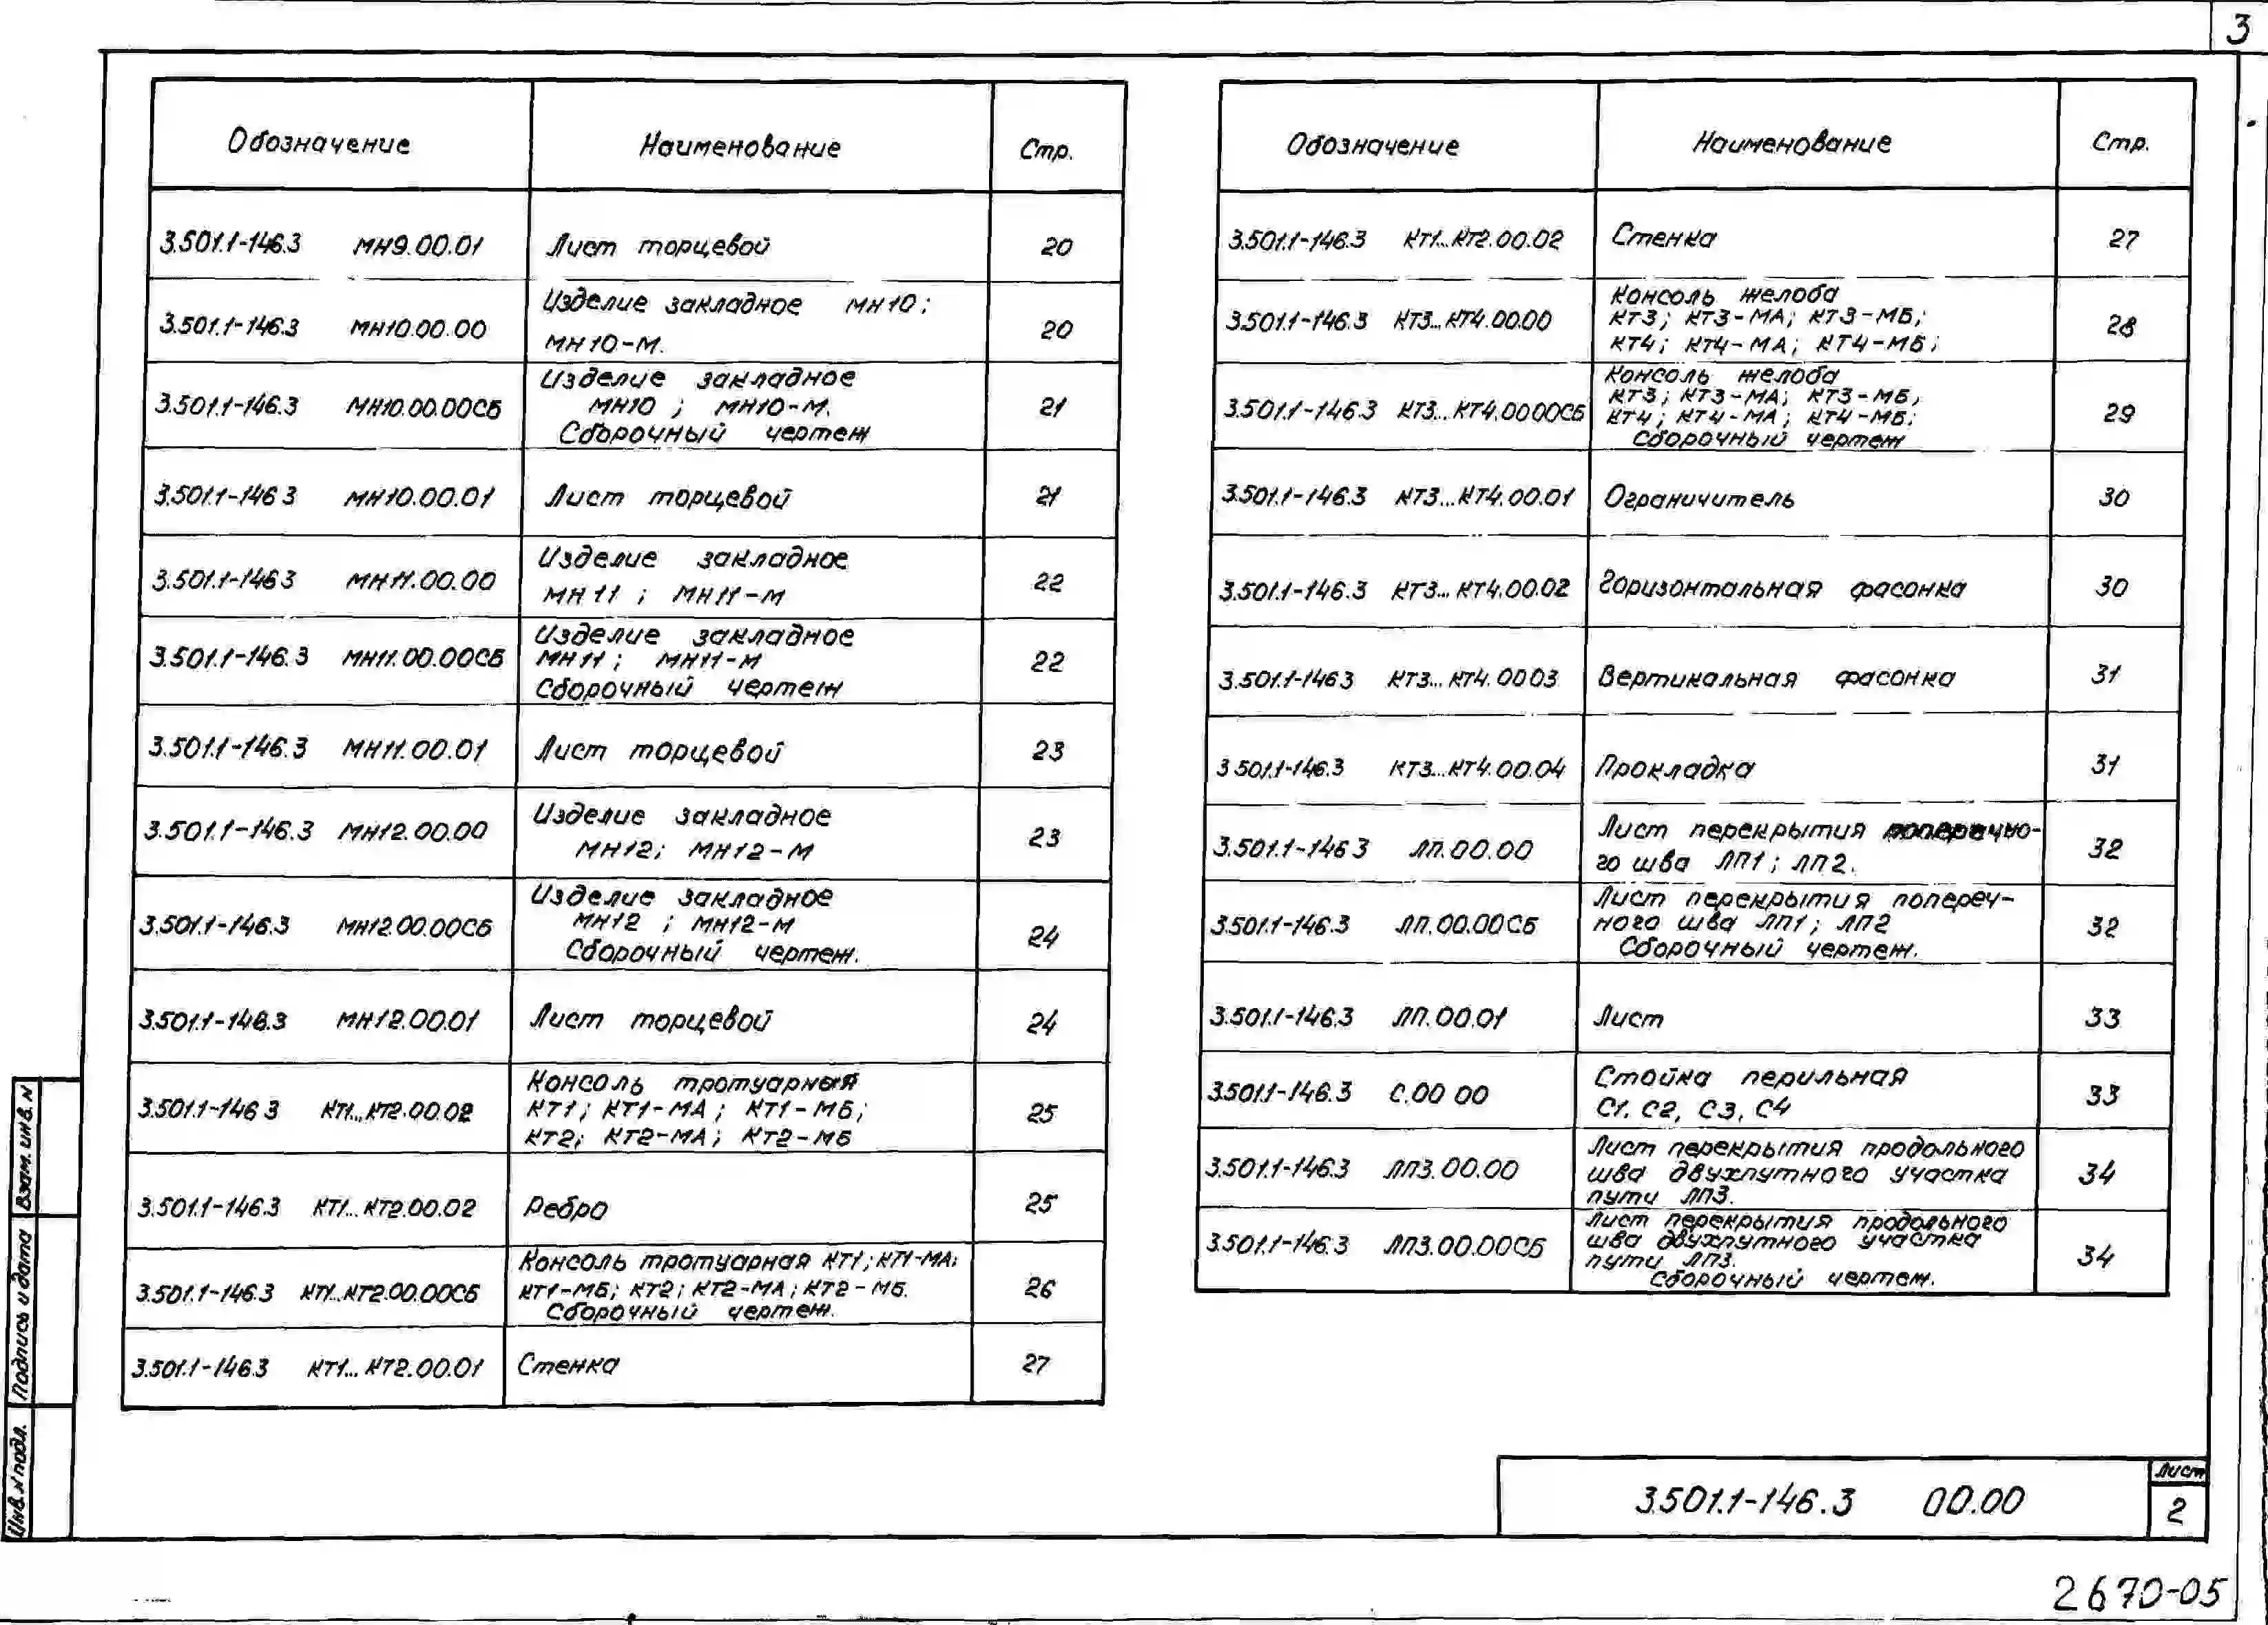 3
Обозначение Наименование Стр.
3.501.1-146.3 МН9.00.01 Лист торцевой 20
3.501.1-146.3 МН10.00.00 Изделие закладное МН10;
МН10-М. 20
3.501.1-146.3 МН10.00.00СБ Изделие закладное
МН10 ; МН10-М.
Сборочный чертеж 21
3.501.1-146 3 МН10.00.01 Лист торцевой 21
3.501.1-146 3 МН11.00.00 Изделие закладное
МН11 ; МН11-М 22
3.501.1-146.3 МН11.00.00СБ Изделие закладное
МН11; МН11-М
Сборочный чертеж 22
3.501.1-146.3 МН11.00.01 Лист торцевой 23
3.501.1-146.3 МН12.00.00 Изделие закладное
МН12; МН12-М 23
3.501.1-146.3 МН12.00.00СБ Изделие закладное
МН12 ; МН12-М
Сборочный чертеж. 24
3.501.1-146.3 МН12.00.01 Лист торцевой 24
3.501.1-146 3 КТ1...КТ2.00.02 Консоль тротуарная
КТ1; КТ1-МА; КТ1-МБ;
КТ2; КТ2-МА; КТ2-МБ 25
3.501.1-146.3 КТ1...КТ2.00.02 Ребро 25
3.501.1-146.3 КТ1...КТ2.00.00СБ Консоль тротуарная КТ1; КТ1-МА;
КТ1-МБ; КТ2; КТ2-МА; КТ2-МБ.
Сборочный чертеж. 26
3.501.1-146.3 КТ1...КТ2.00.01 Стенка 27
Обозначение Наименование Стр.
3.501.1-146.3 КТ1...КТ2.00.02 Стенка 27
3.501.1-146.3 КТ3...КТ4.00.00 Консоль желоба
КТ3; КТ3-МА; КТ3-МБ;
КТ4; КТ4-МА; КТ4-МБ; 28
3.501.1-146.3 КТ3...КТ4.00 00СБ Консоль желоба
КТ3; КТ3-МА; КТ3-МБ,
КТ4; КТ4-МА; КТ4-МБ;
Сборочный чертеж 29
3.501.1-146.3 КТ3...КТ4.00.01 Ограничитель 30
3.501.1-146.3 КТ3...КТ4.00.02 Горизонтальная фасонка 30
3.501.1-146 3 КТ3...КТ4.00 03 Вертикальная фасонка 31
3 501.1-146.3 КТ3...КТ4.00.04 Прокладка 31
3.501.1-146 3 ЛП.00.00 Лист перекрытия поперечно-
го шва ЛП1; ЛП2. 32
3.501.1-146.3 ЛП.00.00СБ Лист перекрытия попереч-
ного шва ЛП1; ЛП2
Сборочный чертеж. 32
3.501.1-146.3 ЛП.00.01 Лист 33
3.501.1-146.3 С.00 00 Стойка перильная
С1. С2, С3, С4 33
3.501.1-146.3 ЛП3.00.00 Лист перекрытия продольного
шва двухпутного участка
пути ЛП3. 34
3.501.1-146.3 ЛП3.00.00СБ Лист перекрытия продольного
шва двухпутного участка
пути ЛП3.
Сборочный чертеж. 34
Взам. инв. N
Подпись и дата
Инв. N подл.
3.501.1-146.3 00.00
Лист
2
2670-05